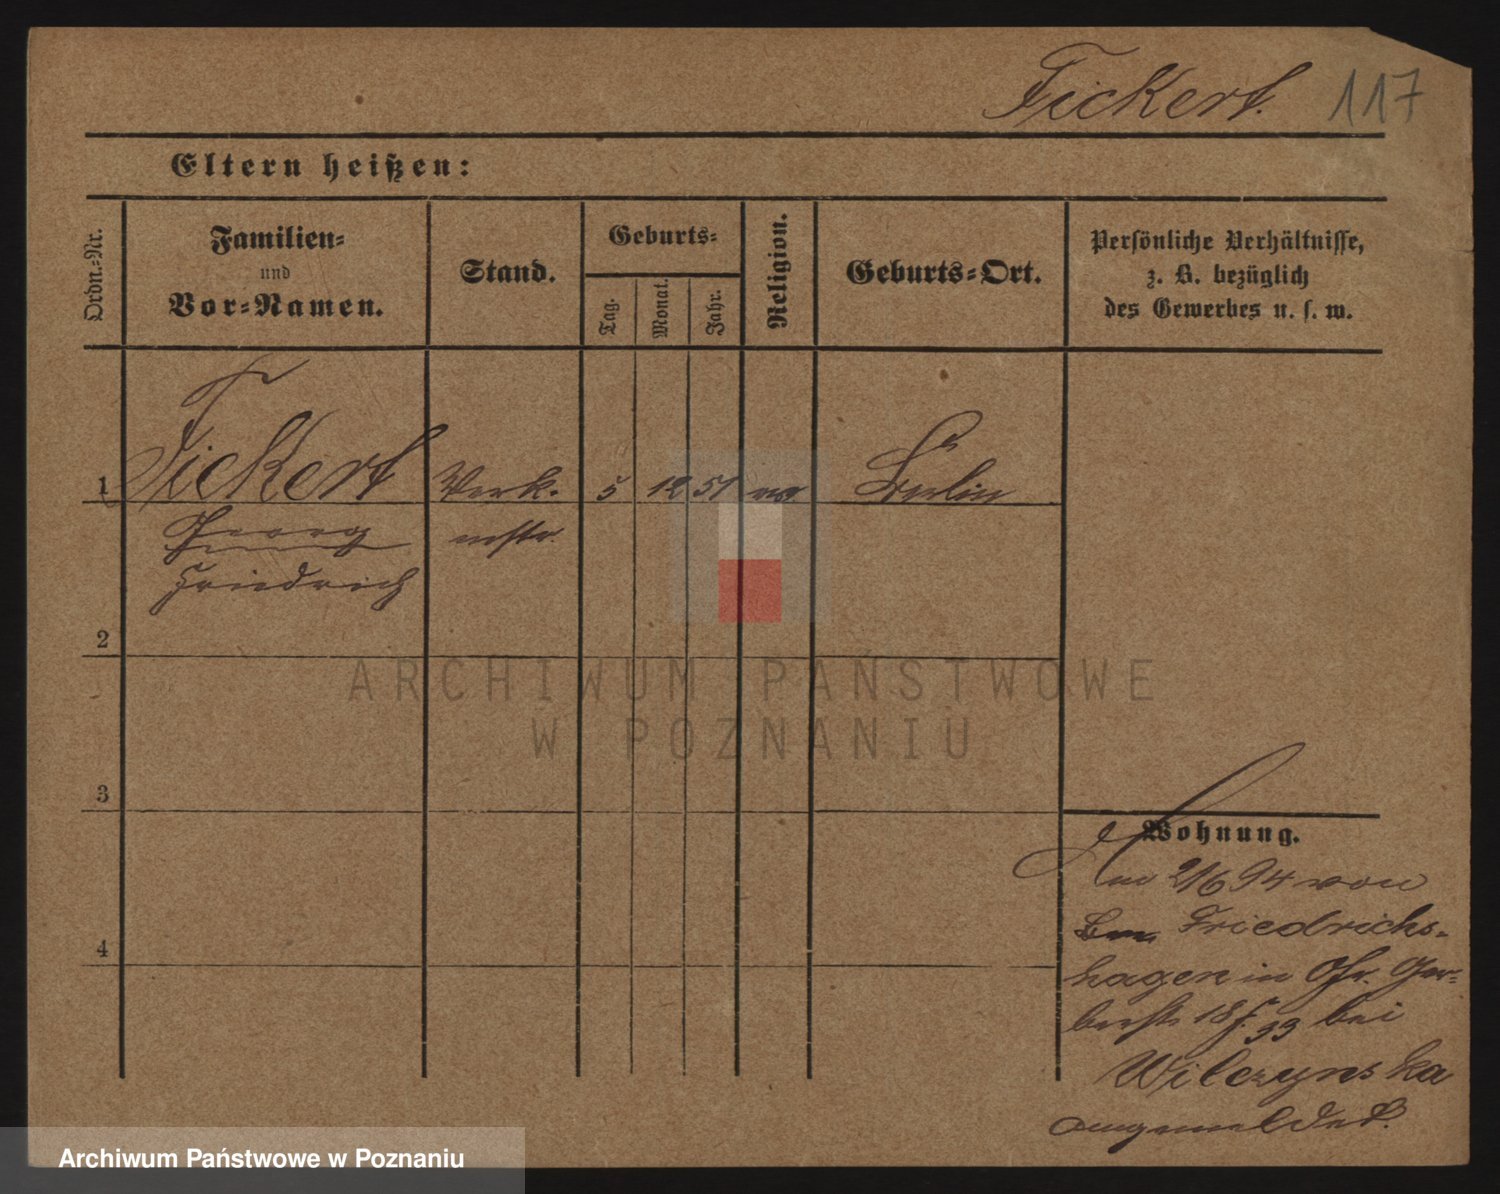 Fickert. 117
Eltern heißen:
Ordn.-Nr.
Familien-
und
Vor-Namen.
Stand.
Geburts-
Tag.
Monat.
Jahr.
Religion.
Geburts-Ort.
Persönliche Verhältnisse,
z. B. bezüglich
des Gewerbes u. s. w.
1 Fickert Werk- 5 12 51 Berlin
Georg mstr.
Friedrich
2
3
4
Wohnung.
Am 2/6 94 von
Friedrichs-
hagen in Gr. Ger-
berstr. 18 bei
Wilczynska
angemeldet.
ARCHIWUM PAŃSTWOWE
W POZNANIU
Archiwum Państwowe w Poznaniu